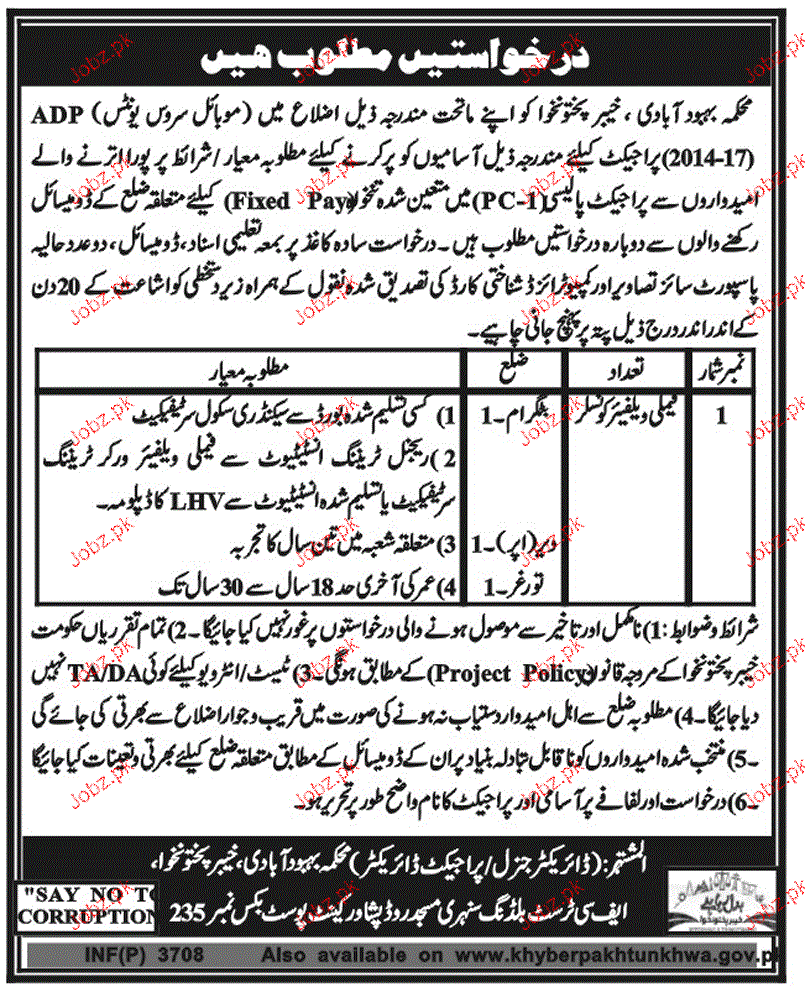 درخواستیں مطلوب ہیں
محکمہ بہبود آبادی، خیبر پختونخوا کو اپنے ماتحت مندرجہ ذیل اضلاع میں (موبائل سروس یونٹس) ADP
(2014-17) پراجیکٹ کیلئے مندرجہ ذیل آسامیوں کو پر کرنے کیلئے مطلوبہ معیار/شرائط پر پورا اترنے والے
امیدواروں سے پراجیکٹ پالیسی (PC-1) میں متعین شدہ تنخواہ (Fixed Pay) کیلئے متعلقہ ضلع کے ڈومیسائل
رکھنے والوں سے دوبارہ درخواستیں مطلوب ہیں۔ درخواست سادہ کاغذ پر بمعہ تعلیمی اسناد، ڈومیسائل، دو عدد حالیہ
پاسپورٹ سائز تصاویر اور کمپیوٹرائزڈ شناختی کارڈ کی تصدیق شدہ نقول کے ہمراہ زیر دستخطی کو اشاعت کے 20 دن
کے اندر اندر درج ذیل پتہ پر پہنچ جانی چاہیے۔
نمبر شمار تعداد ضلع مطلوبہ معیار
1 فیملی ویلفیئر کونسلر بٹگرام۔1 1) کسی تسلیم شدہ بورڈ سے سیکنڈری سکول سرٹیفیکیٹ
2) ریجنل ٹریننگ انسٹیٹیوٹ سے فیملی ویلفیئر ورکر ٹریننگ
سرٹیفیکیٹ یا تسلیم شدہ انسٹیٹیوٹ سے LHV کا ڈپلومہ۔
دیر (اپر)۔1 3) متعلقہ شعبہ میں تین سال کا تجربہ
تورغر۔1 4) عمر کی آخری حد 18 سال سے 30 سال تک
شرائط و ضوابط: 1) نامکمل اور تاخیر سے موصول ہونے والی درخواستوں پر غور نہیں کیا جائیگا۔ 2) تمام تقرریاں حکومت
خیبر پختونخوا کے مروجہ قانون (Project Policy) کے مطابق ہونگی۔ 3) ٹیسٹ/انٹرویو کیلئے کوئی TA/DA نہیں
دیا جائیگا۔ 4) مطلوبہ ضلع سے اہل امیدوار دستیاب نہ ہونے کی صورت میں قریب و جوار اضلاع سے بھرتی کی جائے گی
۔5) منتخب شدہ امیدواروں کو ناقابل تبادلہ بنیاد پر ان کے ڈومیسائل کے مطابق متعلقہ ضلع کیلئے بھرتی و تعینات کیا جائیگا
۔6) درخواست اور لفافے پر آسامی اور پراجیکٹ کا نام واضح طور پر تحریر ہو۔
المشتہر: (ڈائریکٹر جنرل/پراجیکٹ ڈائریکٹر) محکمہ بہبود آبادی، خیبر پختونخوا،
ایف سی ٹرسٹ بلڈنگ سنہری مسجد روڈ پشاور کینٹ پوسٹ بکس نمبر 235
"SAY NO TO
CORRUPTION"
INF(P) 3708 Also available on www.khyberpakhtunkhwa.gov.pk
Jobz.pk